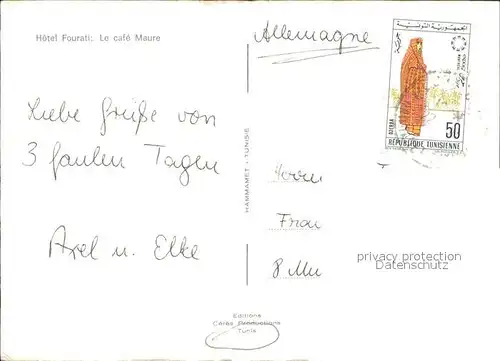 Hôtel Fourati: Le café Maure
Liebe Grüße von
3 faulen Tagen
Axel u. Elke
HAMMAMET - TUNISIE
Editions
Cérès Productions
Tunis
Allemagne
الجمهورية التونسية
DJERBA
50
REPUBLIQUE TUNISIENNE
Herrn
Frau
8 Mü
privacy protection
Datenschutz